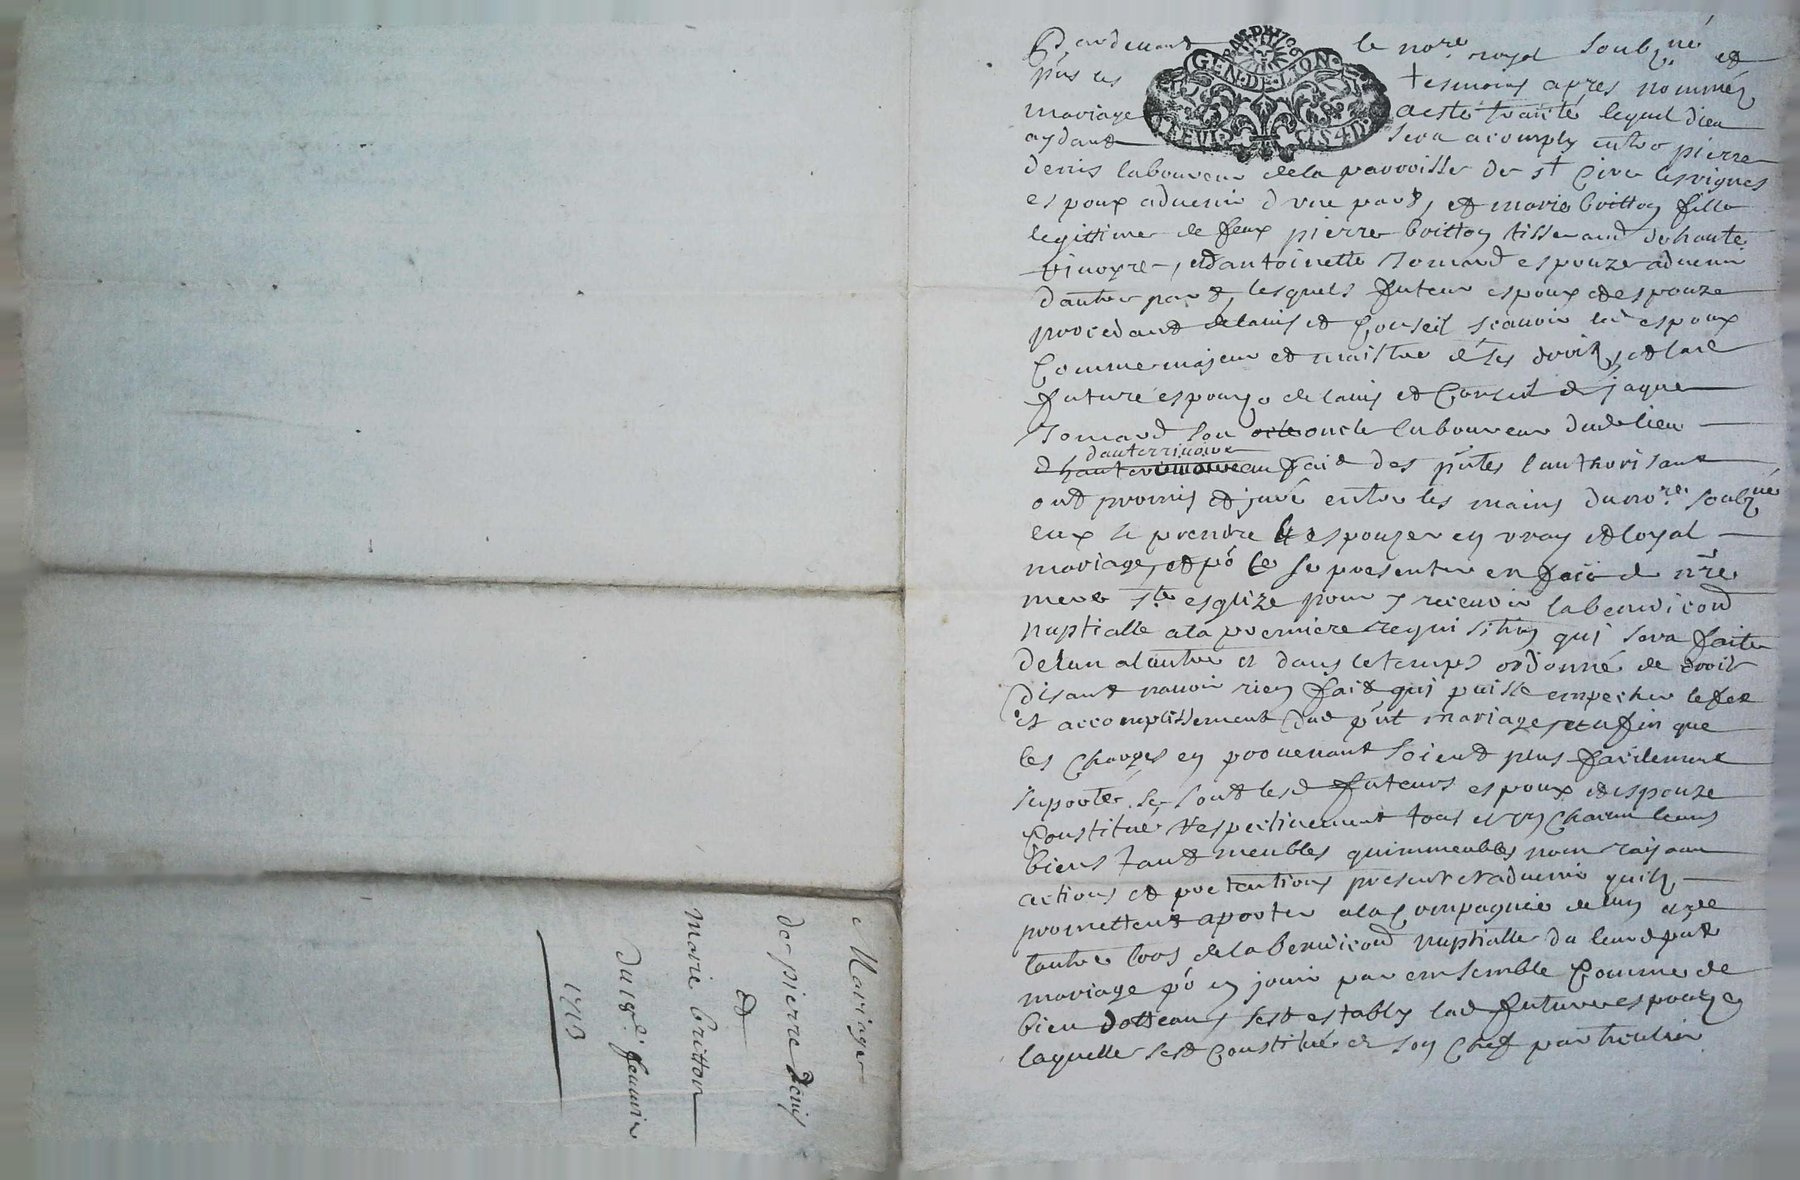 Mariage
de pierre denis
et
marie britton
du 18e. feuvrier
1713
GEN. DE. LION.
Pardevant le nore. royal soubzné et
pñs les tesmoins apres nommés
mariage a esté traité lequel dieu
aydant sera acomply entre pierre
denis laboureur de la parroisse de st Cire les vignes
espoux aduenir d'vne part, et marie britton fille
legittime de feux pierre britton tisserand de haute
riuoyre, et d'antoinette Jomard espouze aduenir
d'autre part, lesquels futeur espoux et espouze
procedant de lauis et Conseil scauoir led espoux
Comme majeur et maistre de ses droitz, et lad
future espouze de lauis et Conseil de jaque
Jomard son oncle laboureur dud lieu
d'auterriuoire
au fait des pñtes l'authorisant
ont promis et juré entre les mains dud nore. soubzné
eux se prendre et espouzer en vray et loyal
mariage, et po ce se presenter en face de nre
mere ste. esglize pour y receuoir la benediciond
nuptialle a la premiere requisition qui sera faite
de lun a l'autre et dans le temps ordonné de droit
disant n'auoir rien fait qui puisse empecher leffet
et accomplissement dud pñt mariage, et afin que
les Charges en prouenant soient plus facilement
suportés, se sont lesd futeurs espoux et espouze
Constitué respectiuement tous et vn chacun leurs
biens tant meubles quimmeubles nom raison
actions et pretentions present et aduenir quilz
promettent aporter a la Compagnie de lun a
lautre lors de la benediciond nuptialle du leurd pñt
mariage po en jouir par ensemble Comme de
bien dotteaux, sest estably lad future espouze
laquelle sest Constitué de son Chef particulier